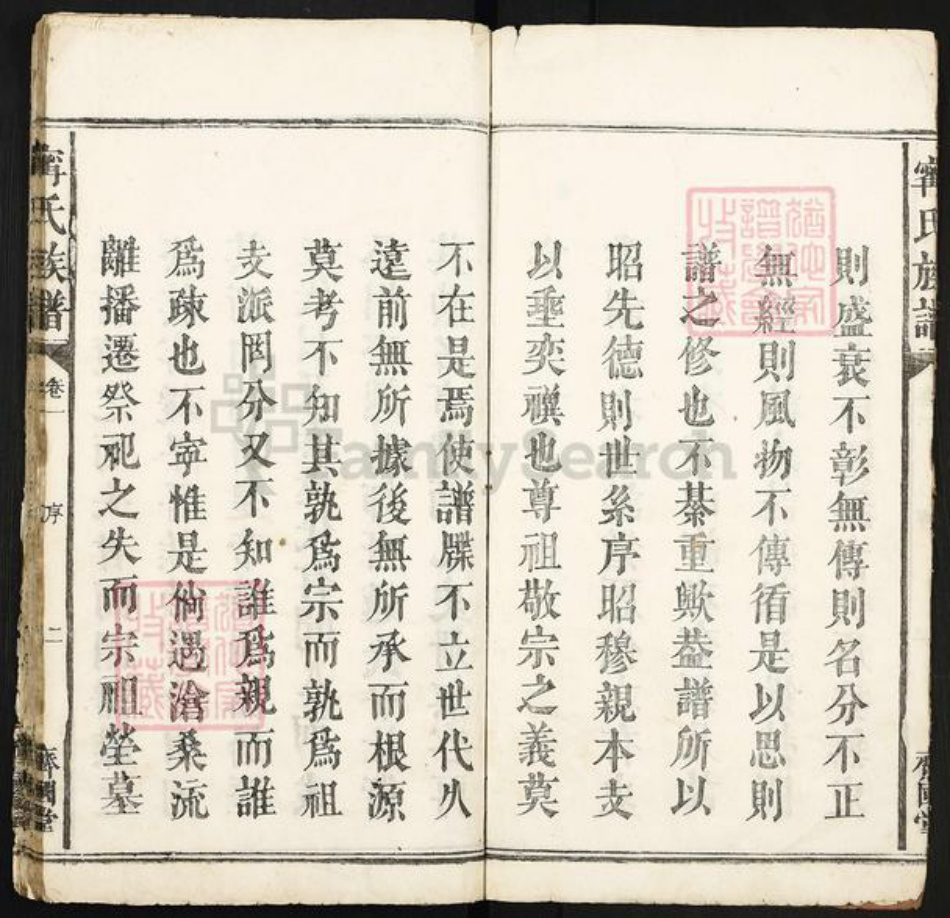 則盛衰不彰無傳則名分不正
無經則風物不傳循是以思則
譜之修也不綦重歟葢譜所以
昭先德則世系序昭穆親本支
以埀奕禩也尊祖敬宗之義莫
不在是焉使譜牒不立世代久
遠前無所據後無所承而根源
莫考不知其孰爲宗而孰爲祖
支派罔分又不知誰爲親而誰
爲疎也不寜惟是倘遇滄桑流
離播遷祭祀之失而宗祖塋墓
甯氏族譜
卷一
序
二
齊國堂
甯氏族譜
齊國堂
FamilySearch